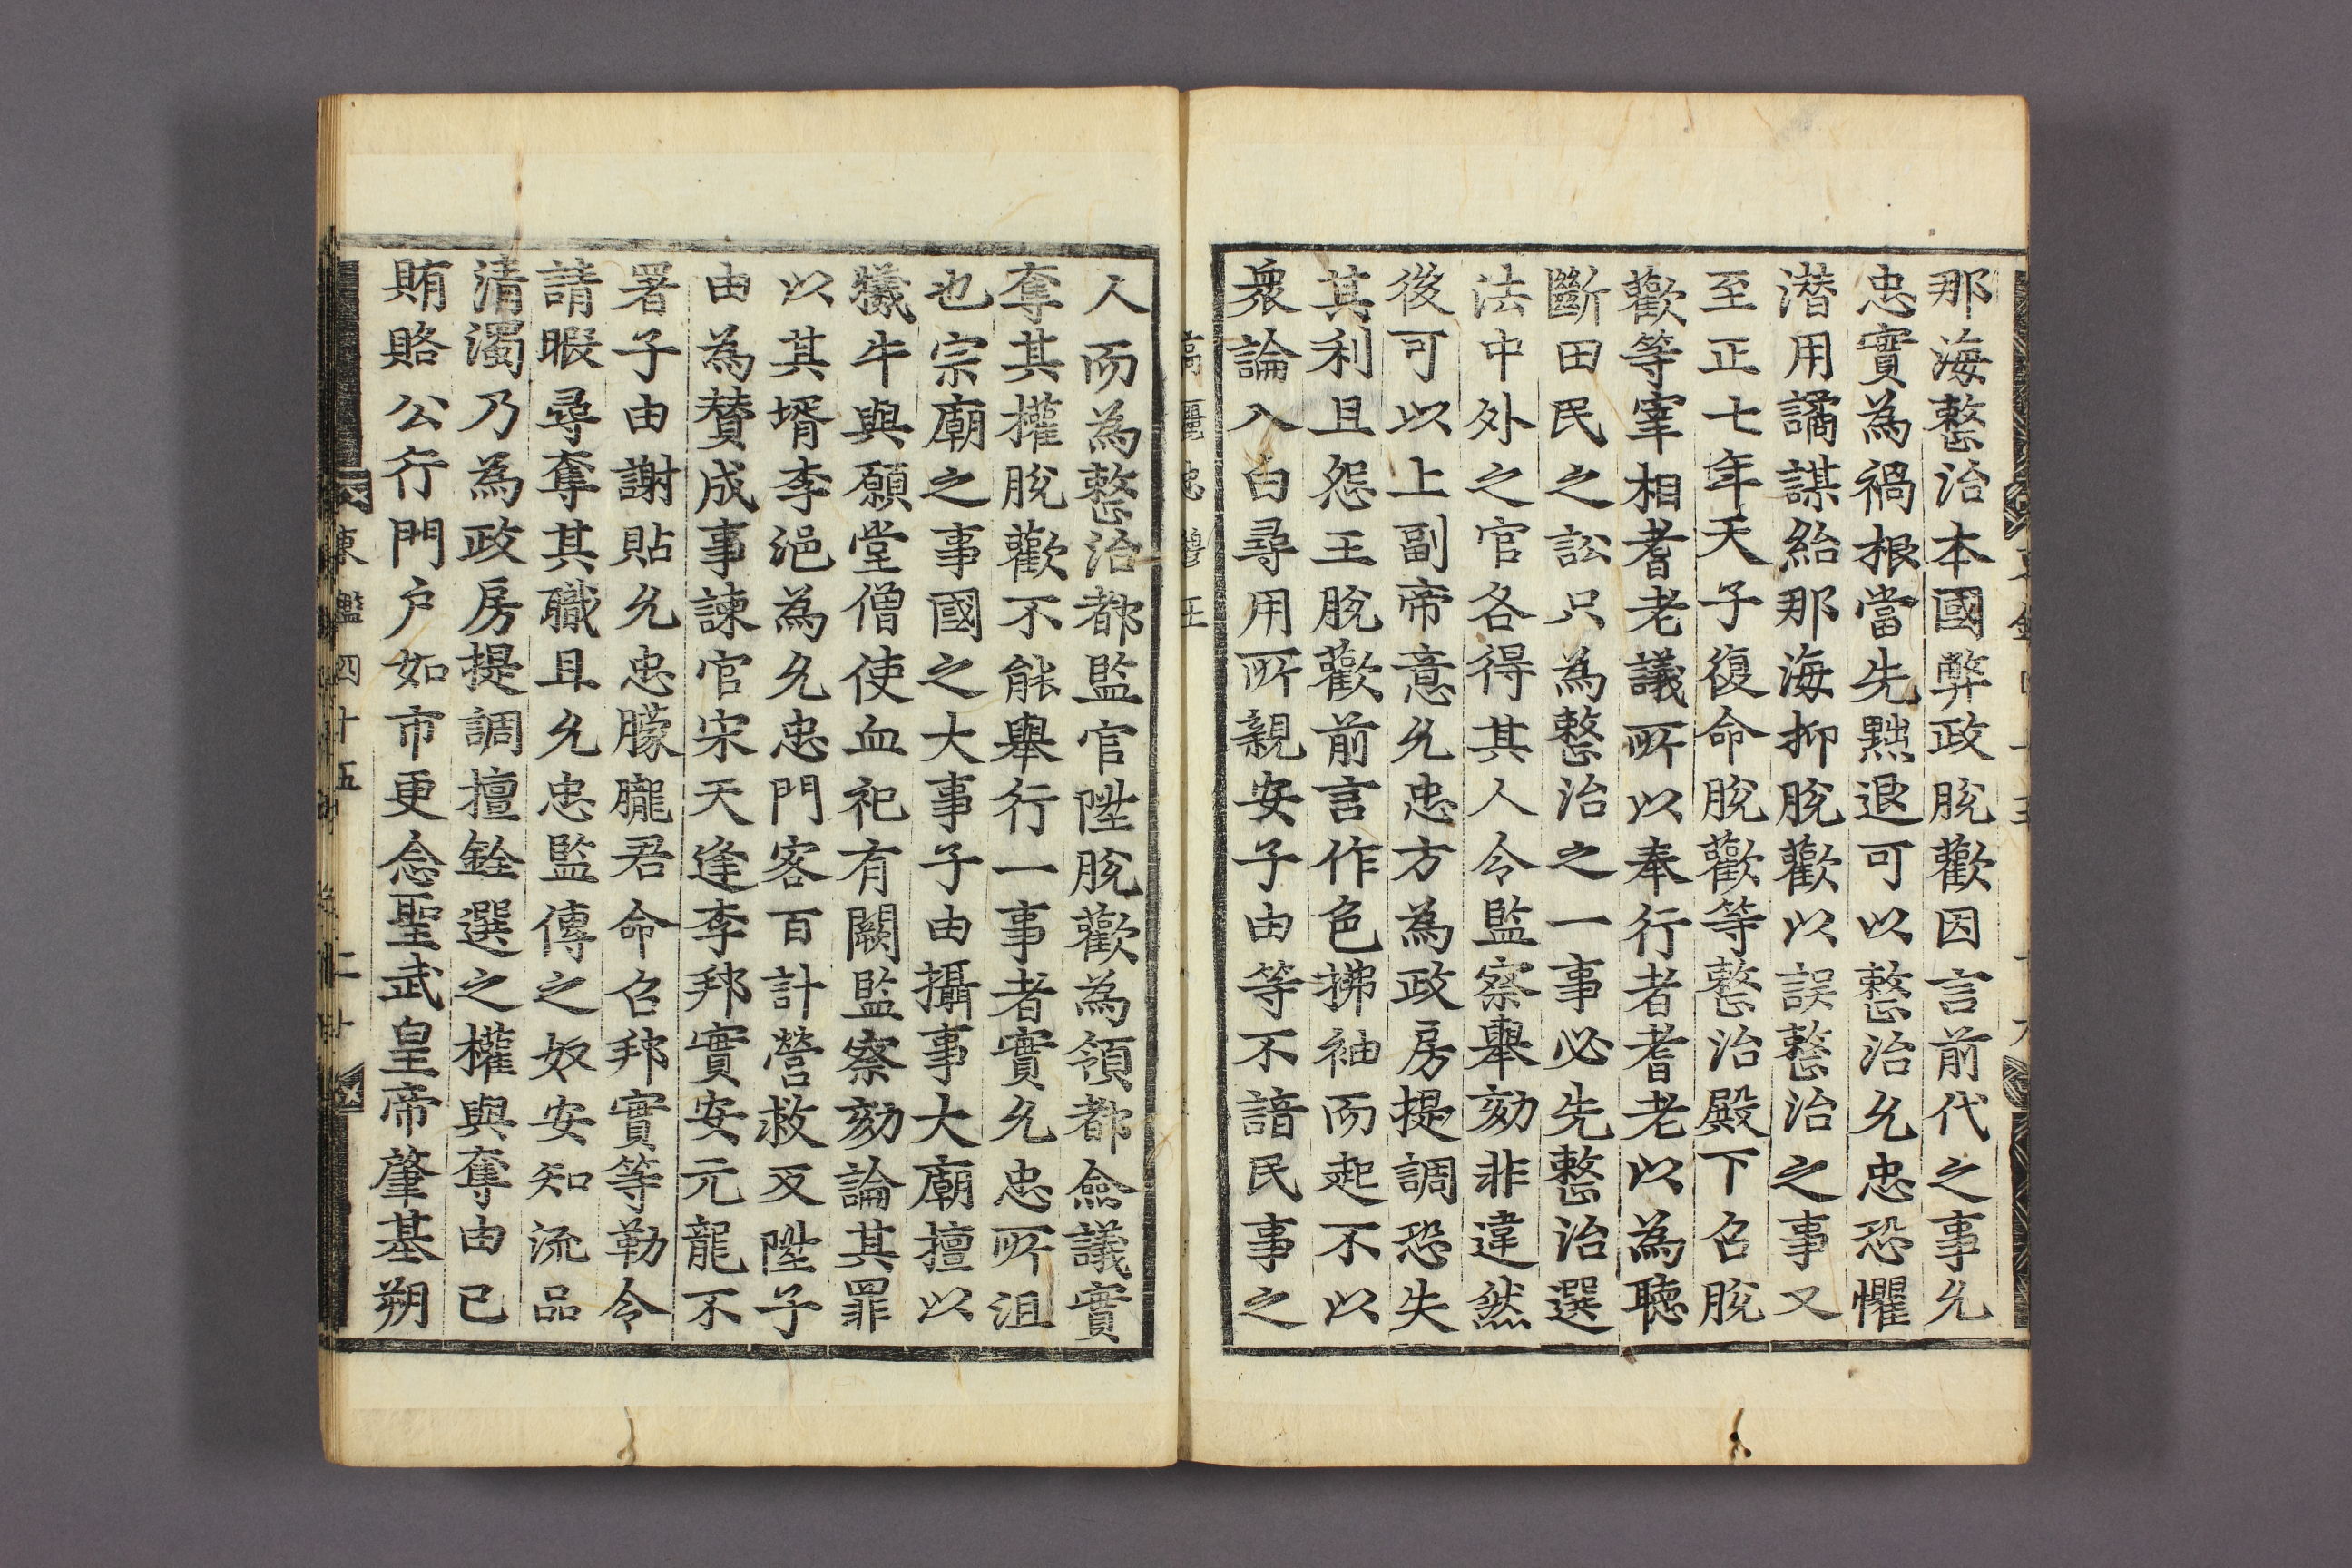 那海整治本國弊政脫歡因言前代之事允
忠實為禍根當先黜退可以整治允忠恐懼
潜用譎謀紿那海抑脫歡以誤整治之事又
至正七年天子復命脫歡等整治殿下召脫
歡等宰相耆老議所以奉行者耆老以為聽
斷田民之訟只為整治之一事必先整治選
法中外之官各得其人令監察舉劾非違然
後可以上副帝意允忠方為政房提調恐失
其利且怨王脫歡前言作色拂袖而起不以
衆論入白尋用所親安子由等不諳民事之
高麗忠穆王
人而為整治都監官陞脫歡為領都僉議實
奪其權脫歡不能舉行一事者實允忠所沮
也宗廟之事國之大事子由攝事大廟擅以
犧牛與願堂僧使血祀有闕監察劾論其罪
以其壻李浥為允忠門客百計營救反陞子
由為贊成事諫官宋天逢李邦實安元龍不
署子由謝貼允忠朦朧君命召邦實等勒令
請暇尋奪其職且允忠監傳之奴安知流品
清濁乃為政房提調擅銓選之權與奪由己
賄賂公行門戶如市更念聖武皇帝肇基朔
東鑑四十五 二十